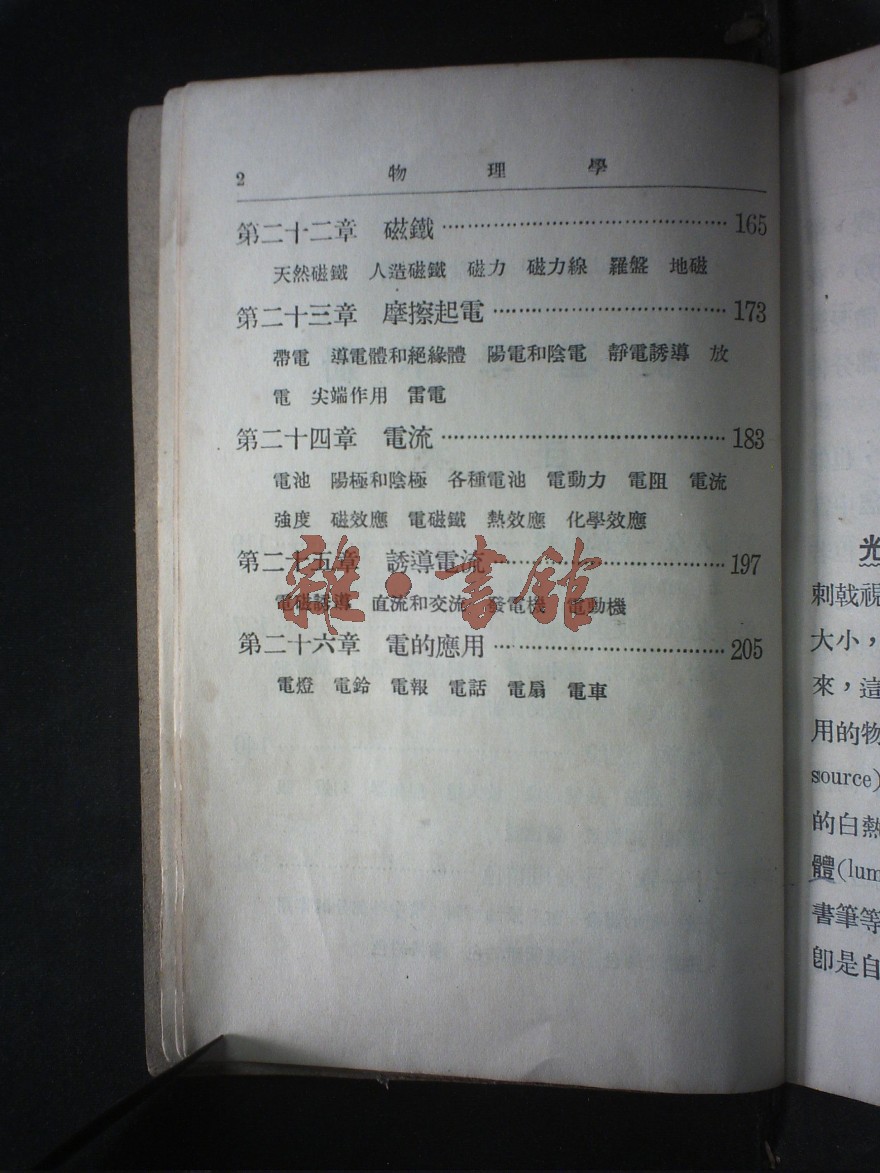 2 物理學
第二十二章 磁鐵……………………………………165
天然磁鐵 人造磁鐵 磁力 磁力線 羅盤 地磁
第二十三章 摩擦起電………………………………173
帶電 導電體和絕緣體 陽電和陰電 靜電誘導 放
電 尖端作用 雷電
第二十四章 電流……………………………………183
電池 陽極和陰極 各種電池 電動力 電阻 電流
強度 磁效應 電磁鐵 熱效應 化學效應
第二十五章 誘導電流………………………………197
電磁誘導 直流和交流 發電機 電動機
第二十六章 電的應用………………………………205
電燈 電鈴 電報 電話 電扇 電車
雜·書館
光
刺戟視
大小，
來，這
用的物
source)
的白熱
體(lum
書筆等
卽是自